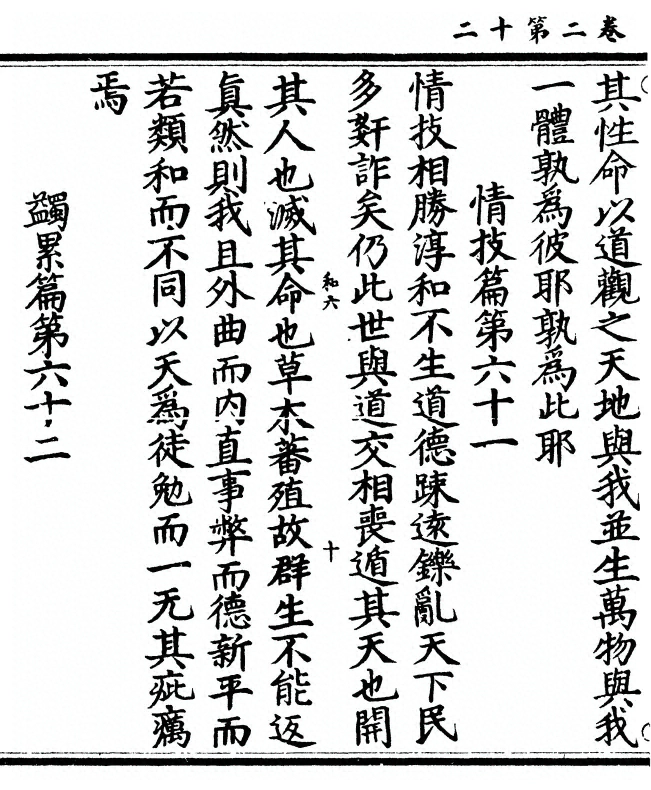 卷二第十二
其性命以道觀之天地與我並生萬物與我
一體孰為彼耶孰為此耶
情技篇第六十一
情技相勝淳和不生道德踈遠鑠亂天下民
多姧詐矣仍此世與道交相喪遁其天也開
和六
十
其人也滅其命也草木蕃殖故群生不能返
真然則我且外曲而内直事弊而德新平而
若類和而不同以天為徒勉而一无其疵癘
焉
蠲累篇第六十二